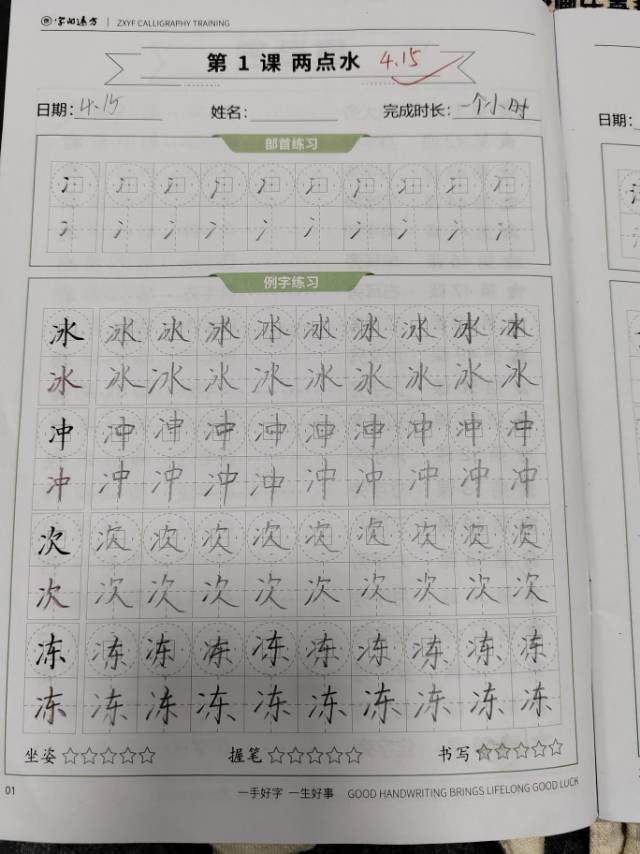 字如远方 ZXYF CALLIGRAPHY TRAINING
第1课 两点水 4.15
日期: 4.15 姓名: 完成时长: 一个小时
日期:
部首练习
冫 冫 冫 冫 冫 冫 冫 冫 冫 冫
冫 冫 冫 冫 冫 冫 冫 冫 冫 冫
例字练习
冰 冰 冰 冰 冰 冰 冰 冰 冰 冰
冰 冰 冰 冰 冰 冰 冰 冰 冰 冰
冲 冲 冲 冲 冲 冲 冲 冲 冲 冲
冲 冲 冲 冲 冲 冲 冲 冲 冲 冲
次 次 次 次 次 次 次 次 次 次
次 次 次 次 次 次 次 次 次 次
冻 冻 冻 冻 冻 冻 冻 冻 冻 冻
冻 冻 冻 冻 冻 冻 冻 冻 冻 冻
坐姿☆☆☆☆☆ 握笔☆☆☆☆☆ 书写☆☆☆☆☆
01 一手好字 一生好事 GOOD HANDWRITING BRINGS LIFELONG GOOD LUCK